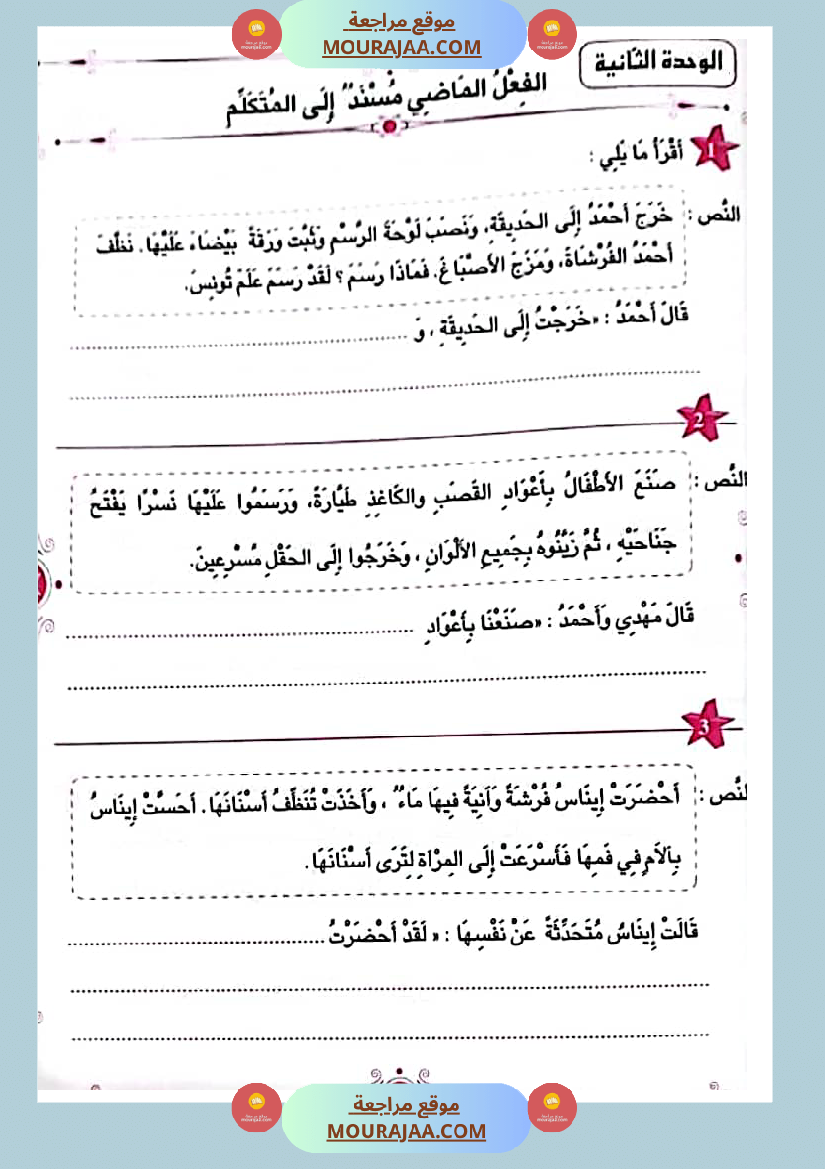 موقع مراجعة
MOURAJAA.COM
الوحدة الثانية
الفِعْلُ المَاضِي مُسْنَدٌ إِلَى المُتَكَلِّمِ
1
أَقْرَأُ مَا يَلِي :
النَّص :
خَرَجَ أَحْمَدُ إِلَى الحَدِيقَةِ، وَنَصَبَ لَوْحَةَ الرَّسْمِ وَثَبَّتَ وَرَقَةً بَيْضَاءَ عَلَيْهَا. نَظَّفَ
أَحْمَدُ الفُرْشَاةَ، وَمَزَجَ الأَصْبَاغَ. فَمَاذَا رَسَمَ ؟ لَقَدْ رَسَمَ عَلَمَ تُونِسَ.
قَالَ أَحْمَدُ : «خَرَجْتُ إِلَى الحَدِيقَةِ ، وَ ........................................
........................................
2
النَّص :
صَنَعَ الأَطْفَالُ بِأَعْوَادِ القَصَبِ والكَاغِذِ طَيَّارَةً، وَرَسَمُوا عَلَيْهَا نَسْرًا يَفْتَحُ
جَنَاحَيْهِ ، ثُمَّ زَيَّنُوهُ بِجَمِيعِ الأَلْوَانِ ، وَخَرَجُوا إِلَى الحَقْلِ مُسْرِعِينَ.
قَالَ مَهْدِي وَأَحْمَدُ : «صَنَعْنَا بِأَعْوَادِ ........................................
........................................
3
النَّص :
أَحْضَرَتْ إِينَاسُ فُرْشَةً وَآنِيَةً فِيهَا مَاءٌ ، وَأَخَذَتْ تُنَظِّفُ أَسْنَانَهَا. أَحَسَّتْ إِينَاسُ
بِآلَامٍ فِي فَمِهَا فَأَسْرَعَتْ إِلَى المِرْآةِ لِتَرَى أَسْنَانَهَا.
قَالَتْ إِينَاسُ مُتَحَدِّثَةً عَنْ نَفْسِهَا : « لَقَدْ أَحْضَرْتُ ........................................
........................................
........................................
موقع مراجعة
MOURAJAA.COM